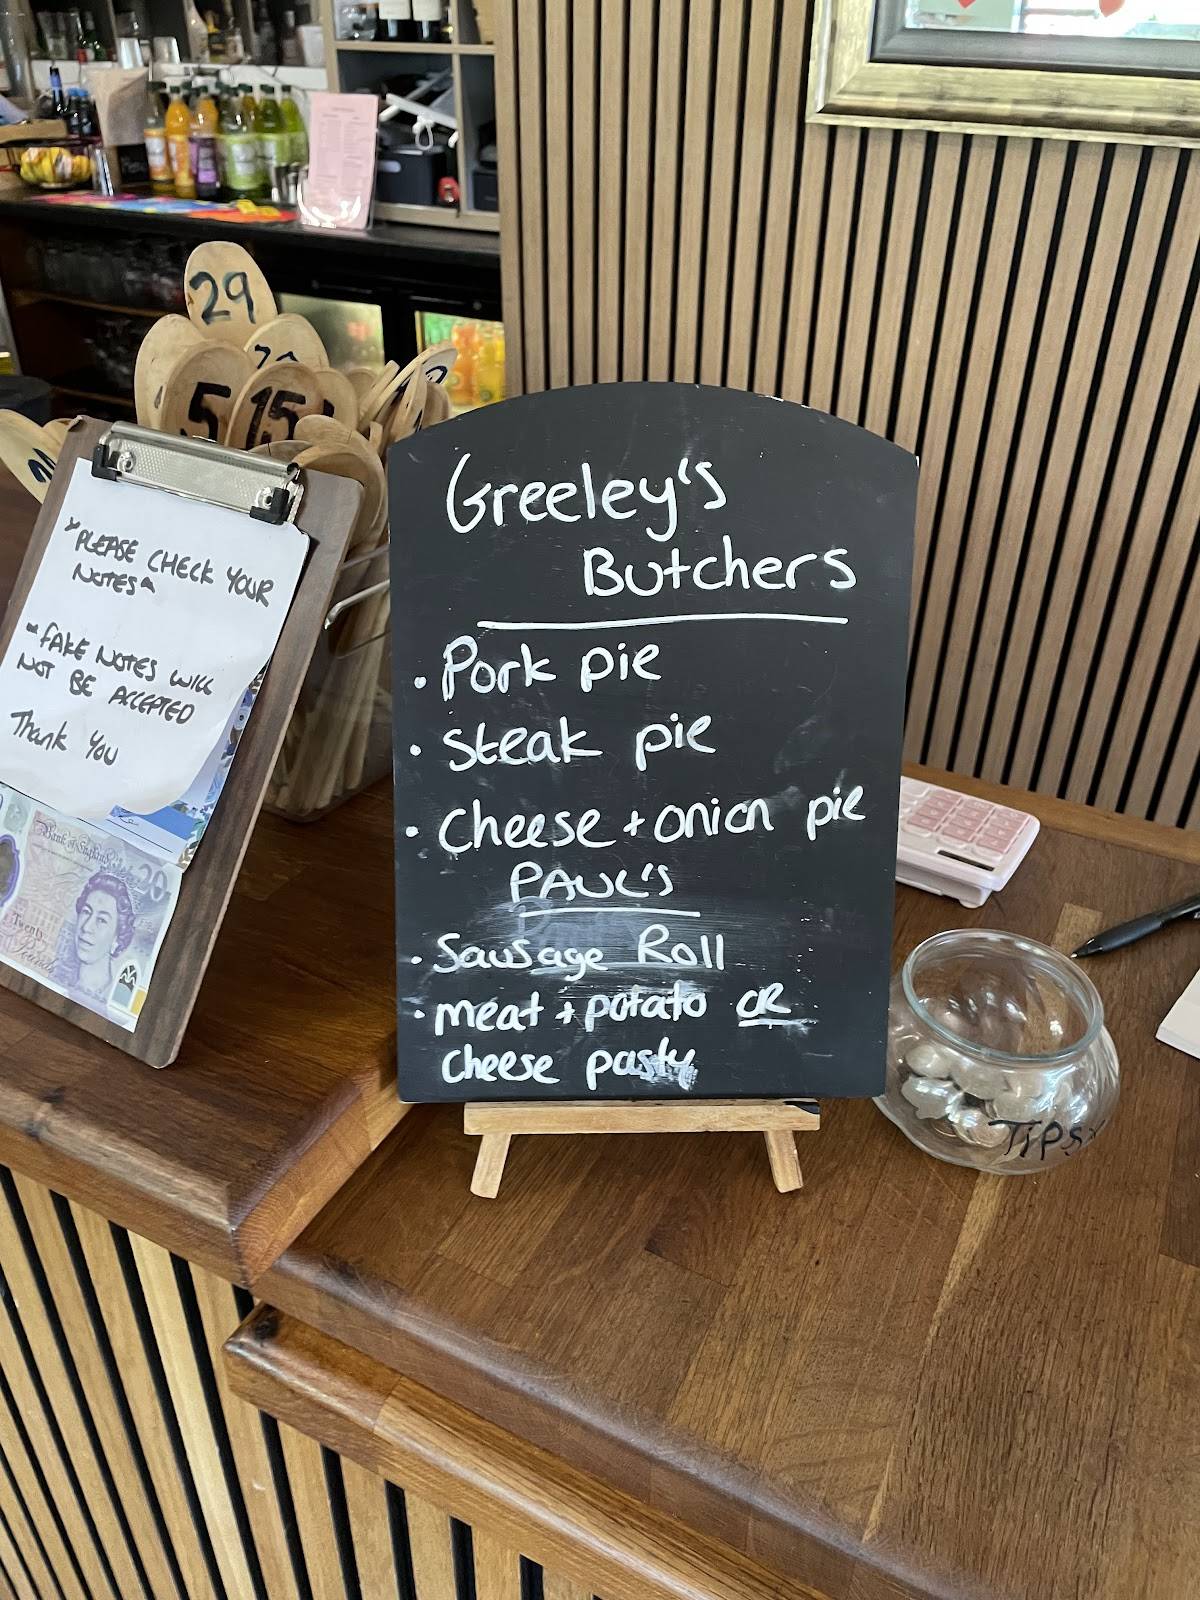 29
5
15
*PLEASE CHECK YOUR
NOTES*
*FAKE NOTES WILL
NOT BE ACCEPTED
Thank You
Bank of England
20
Twenty
Pounds
Greeley's
Butchers
• Pork pie
• Steak pie
• Cheese + onion pie
PAUL'S
• Sausage Roll
• meat + potato OR
Cheese pasty
TIPS